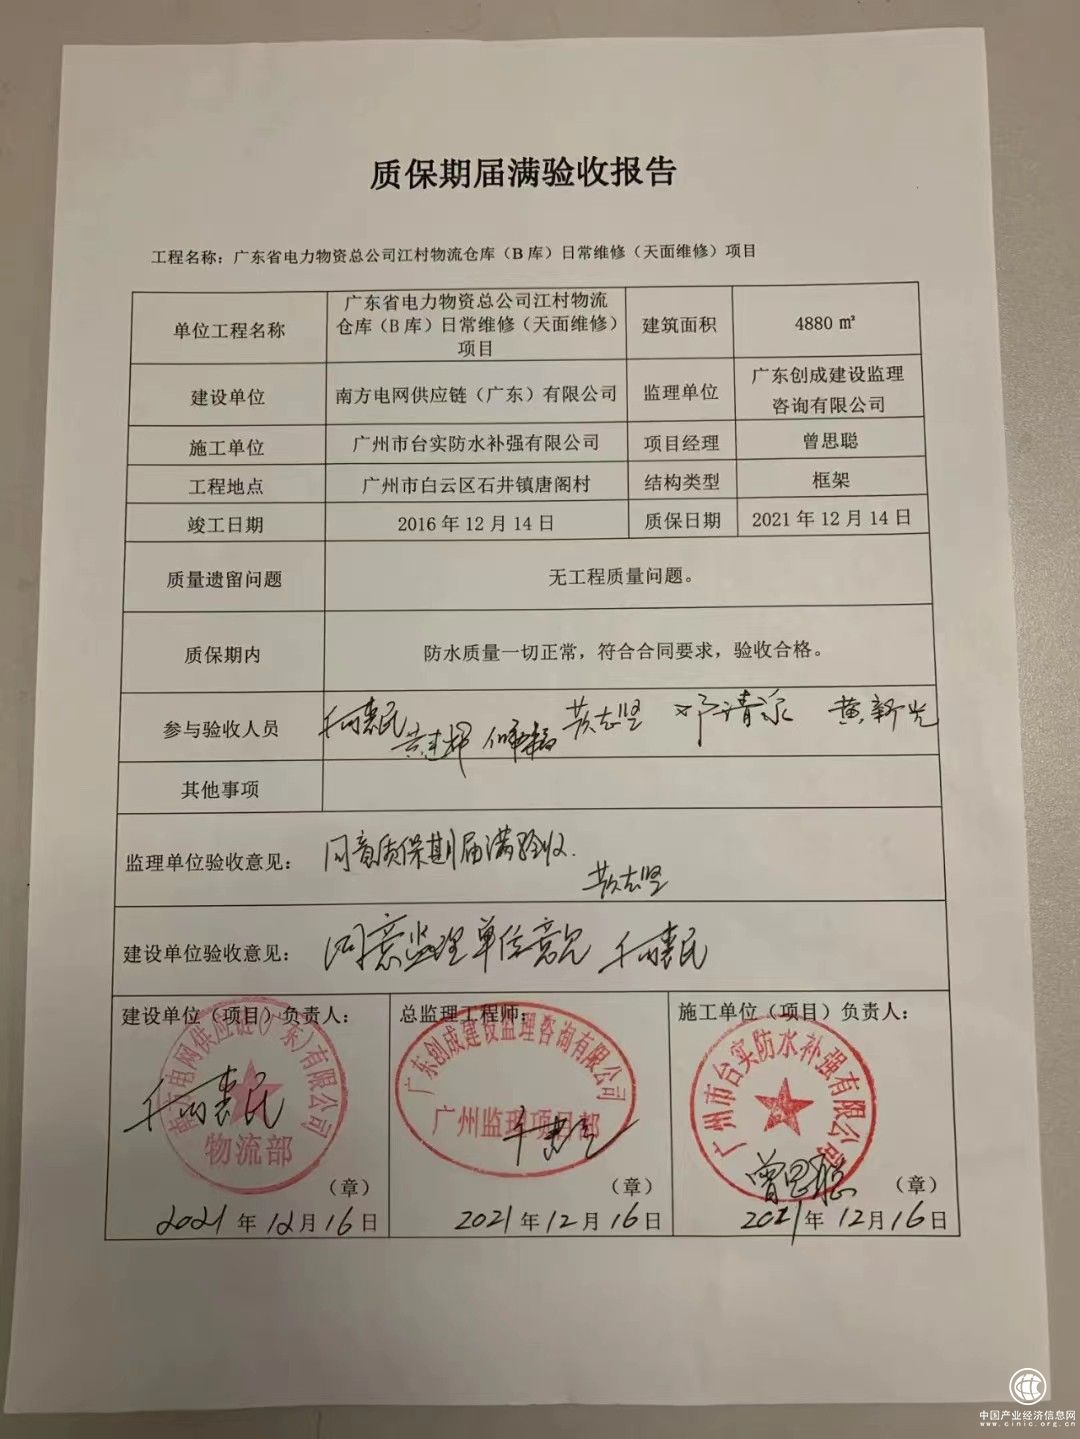 质保期届满验收报告
工程名称：广东省电力物资总公司江村物流仓库（B 库）日常维修（天面维修）项目
单位工程名称
广东省电力物资总公司江村物流
仓库（B 库）日常维修（天面维修）
项目
建筑面积
4880 ㎡
建设单位
南方电网供应链（广东）有限公司
监理单位
广东创成建设监理
咨询有限公司
施工单位
广州市台实防水补强有限公司
项目经理
曾思聪
工程地点
广州市白云区石井镇唐阁村
结构类型
框架
竣工日期
2016 年 12 月 14 日
质保日期
2021 年 12 月 14 日
质量遗留问题
无工程质量问题。
质保期内
防水质量一切正常，符合合同要求，验收合格。
参与验收人员
黄新光
其他事项
监理单位验收意见：
同意质保期届满验收.
建设单位验收意见：
同意监理单位意见
建设单位（项目）负责人：
南方电网供应链（广东）有限公司
物流部
（章）
2021 年 12 月 16 日
总监理工程师：
广东创成建设监理咨询有限公司
广州监理项目部
（章）
2021 年 12 月 16 日
施工单位（项目）负责人：
广州市台实防水补强有限公司
曾思聪
（章）
2021 年 12 月 16 日
中国产业经济信息网
www.cinic.org.cn